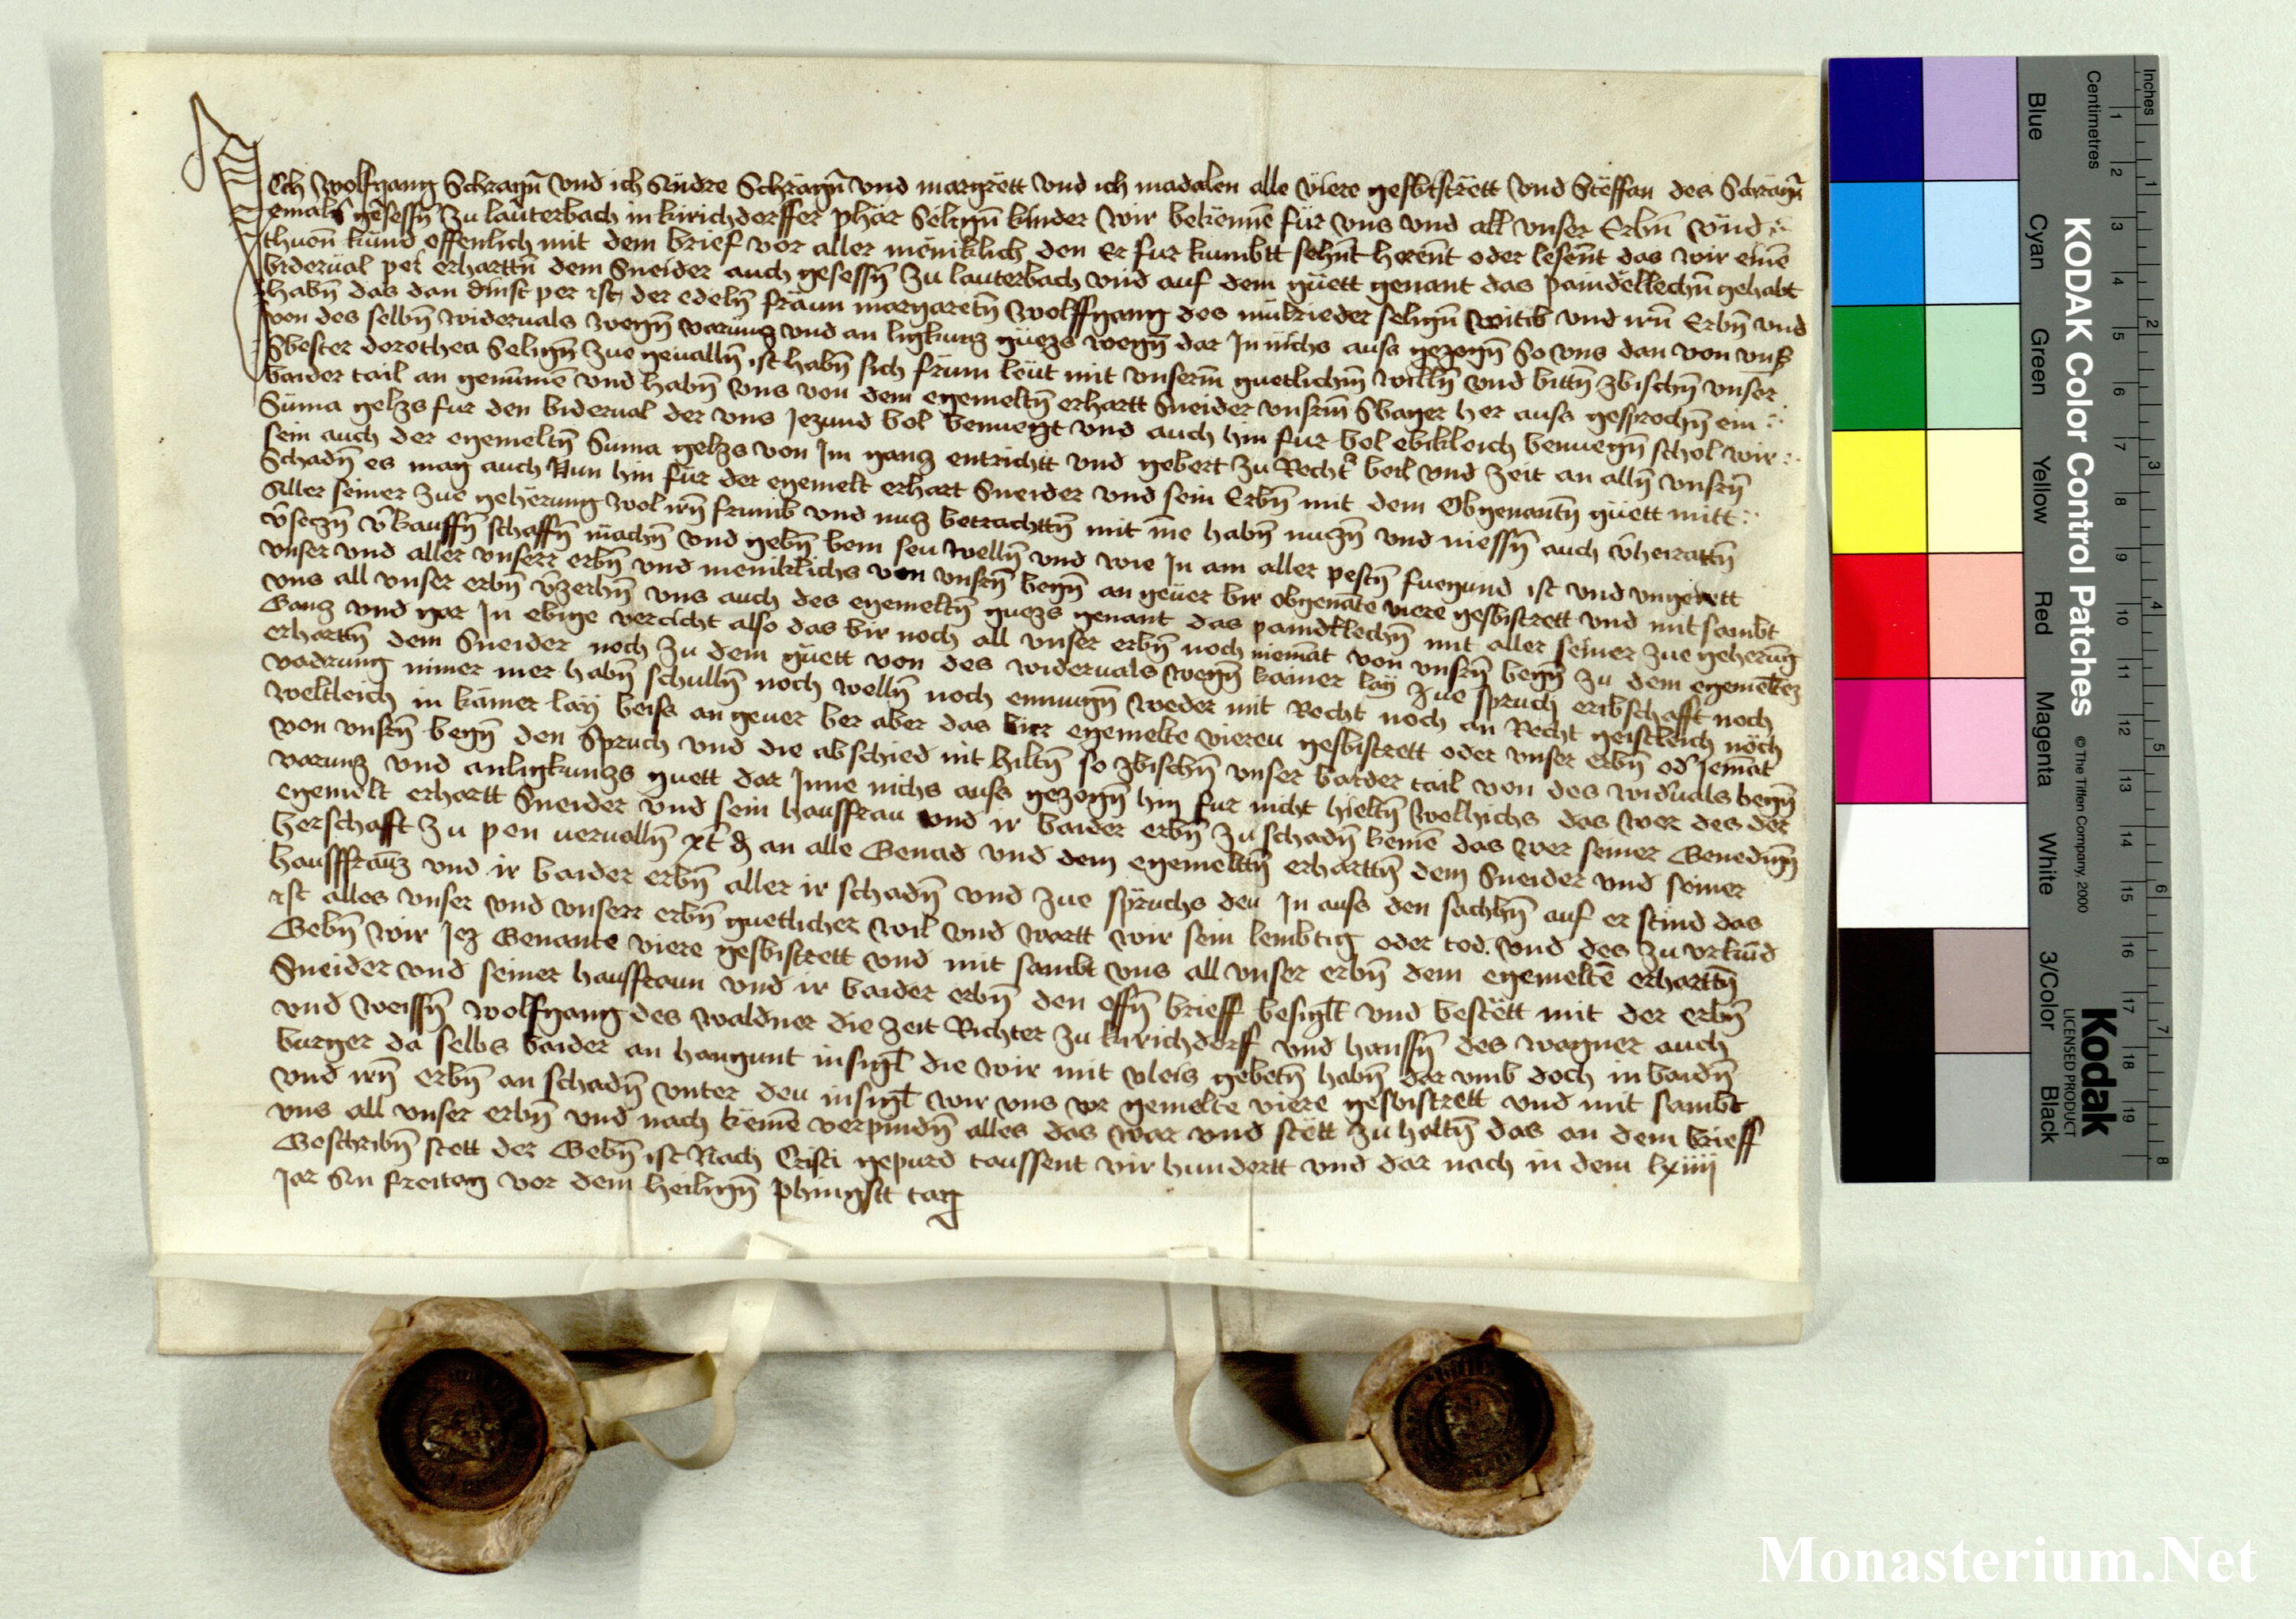 Ich Wolfgang Schragn̄ vnd ich Andre Schragn̄ vnd margrett vnd ich madalen alle viere gesbistrett vnd Steffan des Schragn̄
emals gesessn̄ zu lauterbach in kirichdorffer phar Selign̄ kinder wir bekennē für vns vnd all vnser Erbn̄ vnd
thuen kund offenlich mit dem brief vor aller meniklich den Er fur kumbtt sehn̄t herēnt oder lesēnt das wir einē
biderual pei erharttn̄ dem Sneider auch gesessn̄ zu lauterbach vnd auf dem güett genant das paindellechn̄ gehabt
habn̄ das dan dinst per ist der edeln̄ fraun margaretn̄ Wolffgang des mükrieder selign̄ witib vnd irn̄ Erbn̄ vnd
von des selbn̄ widervals wegn̄ varüng vnd an ligkung güezs wegn̄ dar In nichs auss gezogn̄ So vns dan von vnß
Sbester dorothea Selign̄ zue geualln̄ ist habn̄ sich frum leüt mit vnserm̄ guetlichm̄ willn̄ vnd bittn̄ zbischn̄ vnser
baider tail an genūmē vnd habn̄ vns von dem egemeltn̄ erhartt Sneider vnsrm̄ Sbager her auss gesprochn̄ ein
Süma gelzs fur den biderual der vns Jezund bol benuegt vnd auch hin fur bol ebikleich benuegn̄ schol wir
sein auch der egemeltn̄ Suma gelzs von Im ganz entrichtt vnd gebert zu Rechtr̄ beil vnd zeit an alln̄ vnsrn̄
Schadn̄ es mag auch Nun hin für der egemelt erhart Sneider vnd sein Erbn̄ mit dem Obgenantn̄ güett mitt
Aller seiner zue geherung wol irn̄ frumb vnd nuz betrachttn̄ mit īne habn̄ nuzn̄ vnd niessn̄ auch v̄heirattn̄
v̄seczn̄ v̄kauffn̄ schaffn̄ machn̄ vnd gebn̄ bem seu welln̄ vnd wie In am aller pestn̄ fuegund ist vnd vngeirtt
vnser vnd aller vnserr erbn̄ vnd meniklichs von vnsrn̄ begn̄ an geuer bir obgenāte viere gesbistrett vnd mit sambt
vns all vnser erbn̄ v̄zeihn̄ vns auch des egemeltn̄ guezs genant das paindellechn̄ mit aller seiner zue geherūg
Ganz vnd gar In ebige verzicht also das bir noch all vnser erbn̄ noch niemāt von vnsrn̄ begn̄ zu dem egemeltez
erharttn̄ dem Sneider noch zu dem güett von des widervals wegn̄ kainer lay zue spruch eribschafft noch
vadrung nimer mer habn̄ schulln̄ noch welln̄ noch enmugn̄ weder mit Recht noch an Recht geistleich noch
weltleich in kainer lay beiss an geuer ber aber das birr egemelte viereu gesbistrett oder vnser erbn̄ od̄ Jemāt
von vnsrn̄ begn̄ den Spruch vnd die abschied nit hiltn̄ so zbischn̄ vnser baider tail von des widūals begn̄
varung vnd anligkungs guett dar Inne nichs auss gezogn̄ hin fur nicht hieltn̄ Welhichs das wer des der
egemelt erhartt Sneider vnd sein haussfrau vnd ir baider erbn̄ zu schadn̄ kemē das wer seiner Genedign̄
herschaft zu pen uerualln̄ xl̄ ₰ an alle Genad vnd dem egemelttn̄ erharttn̄ dem Sneider vnd seiner
haussfrauz vnd ir baider erbn̄ aller ir schadn̄ vnd zue spruchs deu In auss den sachn̄ auf er stind das
ist alles vnser vnd vnserr erbn̄ guetlicher wil vnd wartt wir sein lembtig oder tod. vnd des zu vrkūd
Gebn̄ wir Jez Genante viere gesbistrett vnd mit sambt vns all vnser erbn̄ dem egemeltē erharttn̄
Sneider vnd seiner haussfraun vnd ir baider erbn̄ den offn̄ brieff besiglt vnd bestett mit der erbn̄
vnd weissn̄ wolfgang des waldner die zeit Richter zu kirichdorff vnd hanssn̄ des wagner auch
burger da selbs baider an hangunt insigl̄ die wir mit vleis gebetn̄ habn̄ dar vmb doch in baidn̄
vnd irn̄ erbn̄ an schadn̄ vnter deu insigl̄ wir vns vor gemelte viere gesbistrett vnd mit sambt
vns all vnser erbn̄ vnd nach kemē verpindn̄ alles das war vnd stett zu haltn̄ das an dem brieff
Geschribn̄ stett der Gebn̄ ist Nach Cristi gepurd taussent vir hundertt vnd dar nach in dem lxiiij
Jar An freitag vor dem heilign̄ phingstt tag
KODAK Color Control Patches © The Tiffen Company, 2000
Kodak
LICENSED PRODUCT
Inches 1 2 3 4 5 6 7 8
Centimetres 1 2 3 4 5 6 7 8 9 10 11 12 13 14 15 16 17 18 19
Blue Cyan Green Yellow Red Magenta White 3/Color Black
Monasterium.Net